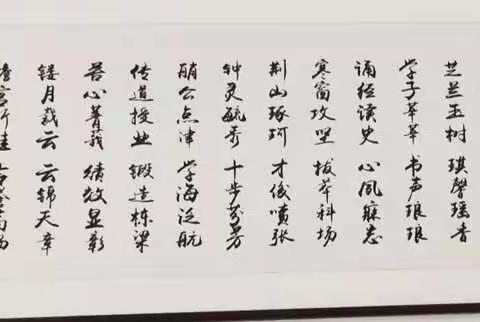 芝兰玉树 琪馨瑶香
学子莘莘 书声琅琅
诵经读史 心夙寐
寒窗攻坚 拔萃科场
荆山琢珂 才俊喷张
钟灵毓秀 十步芬芳
公点津 学海泛航
传道授业 锻造栋梁
苦心菁莪 绩效显彰
镂月裁云 云锦天章
宫折桂